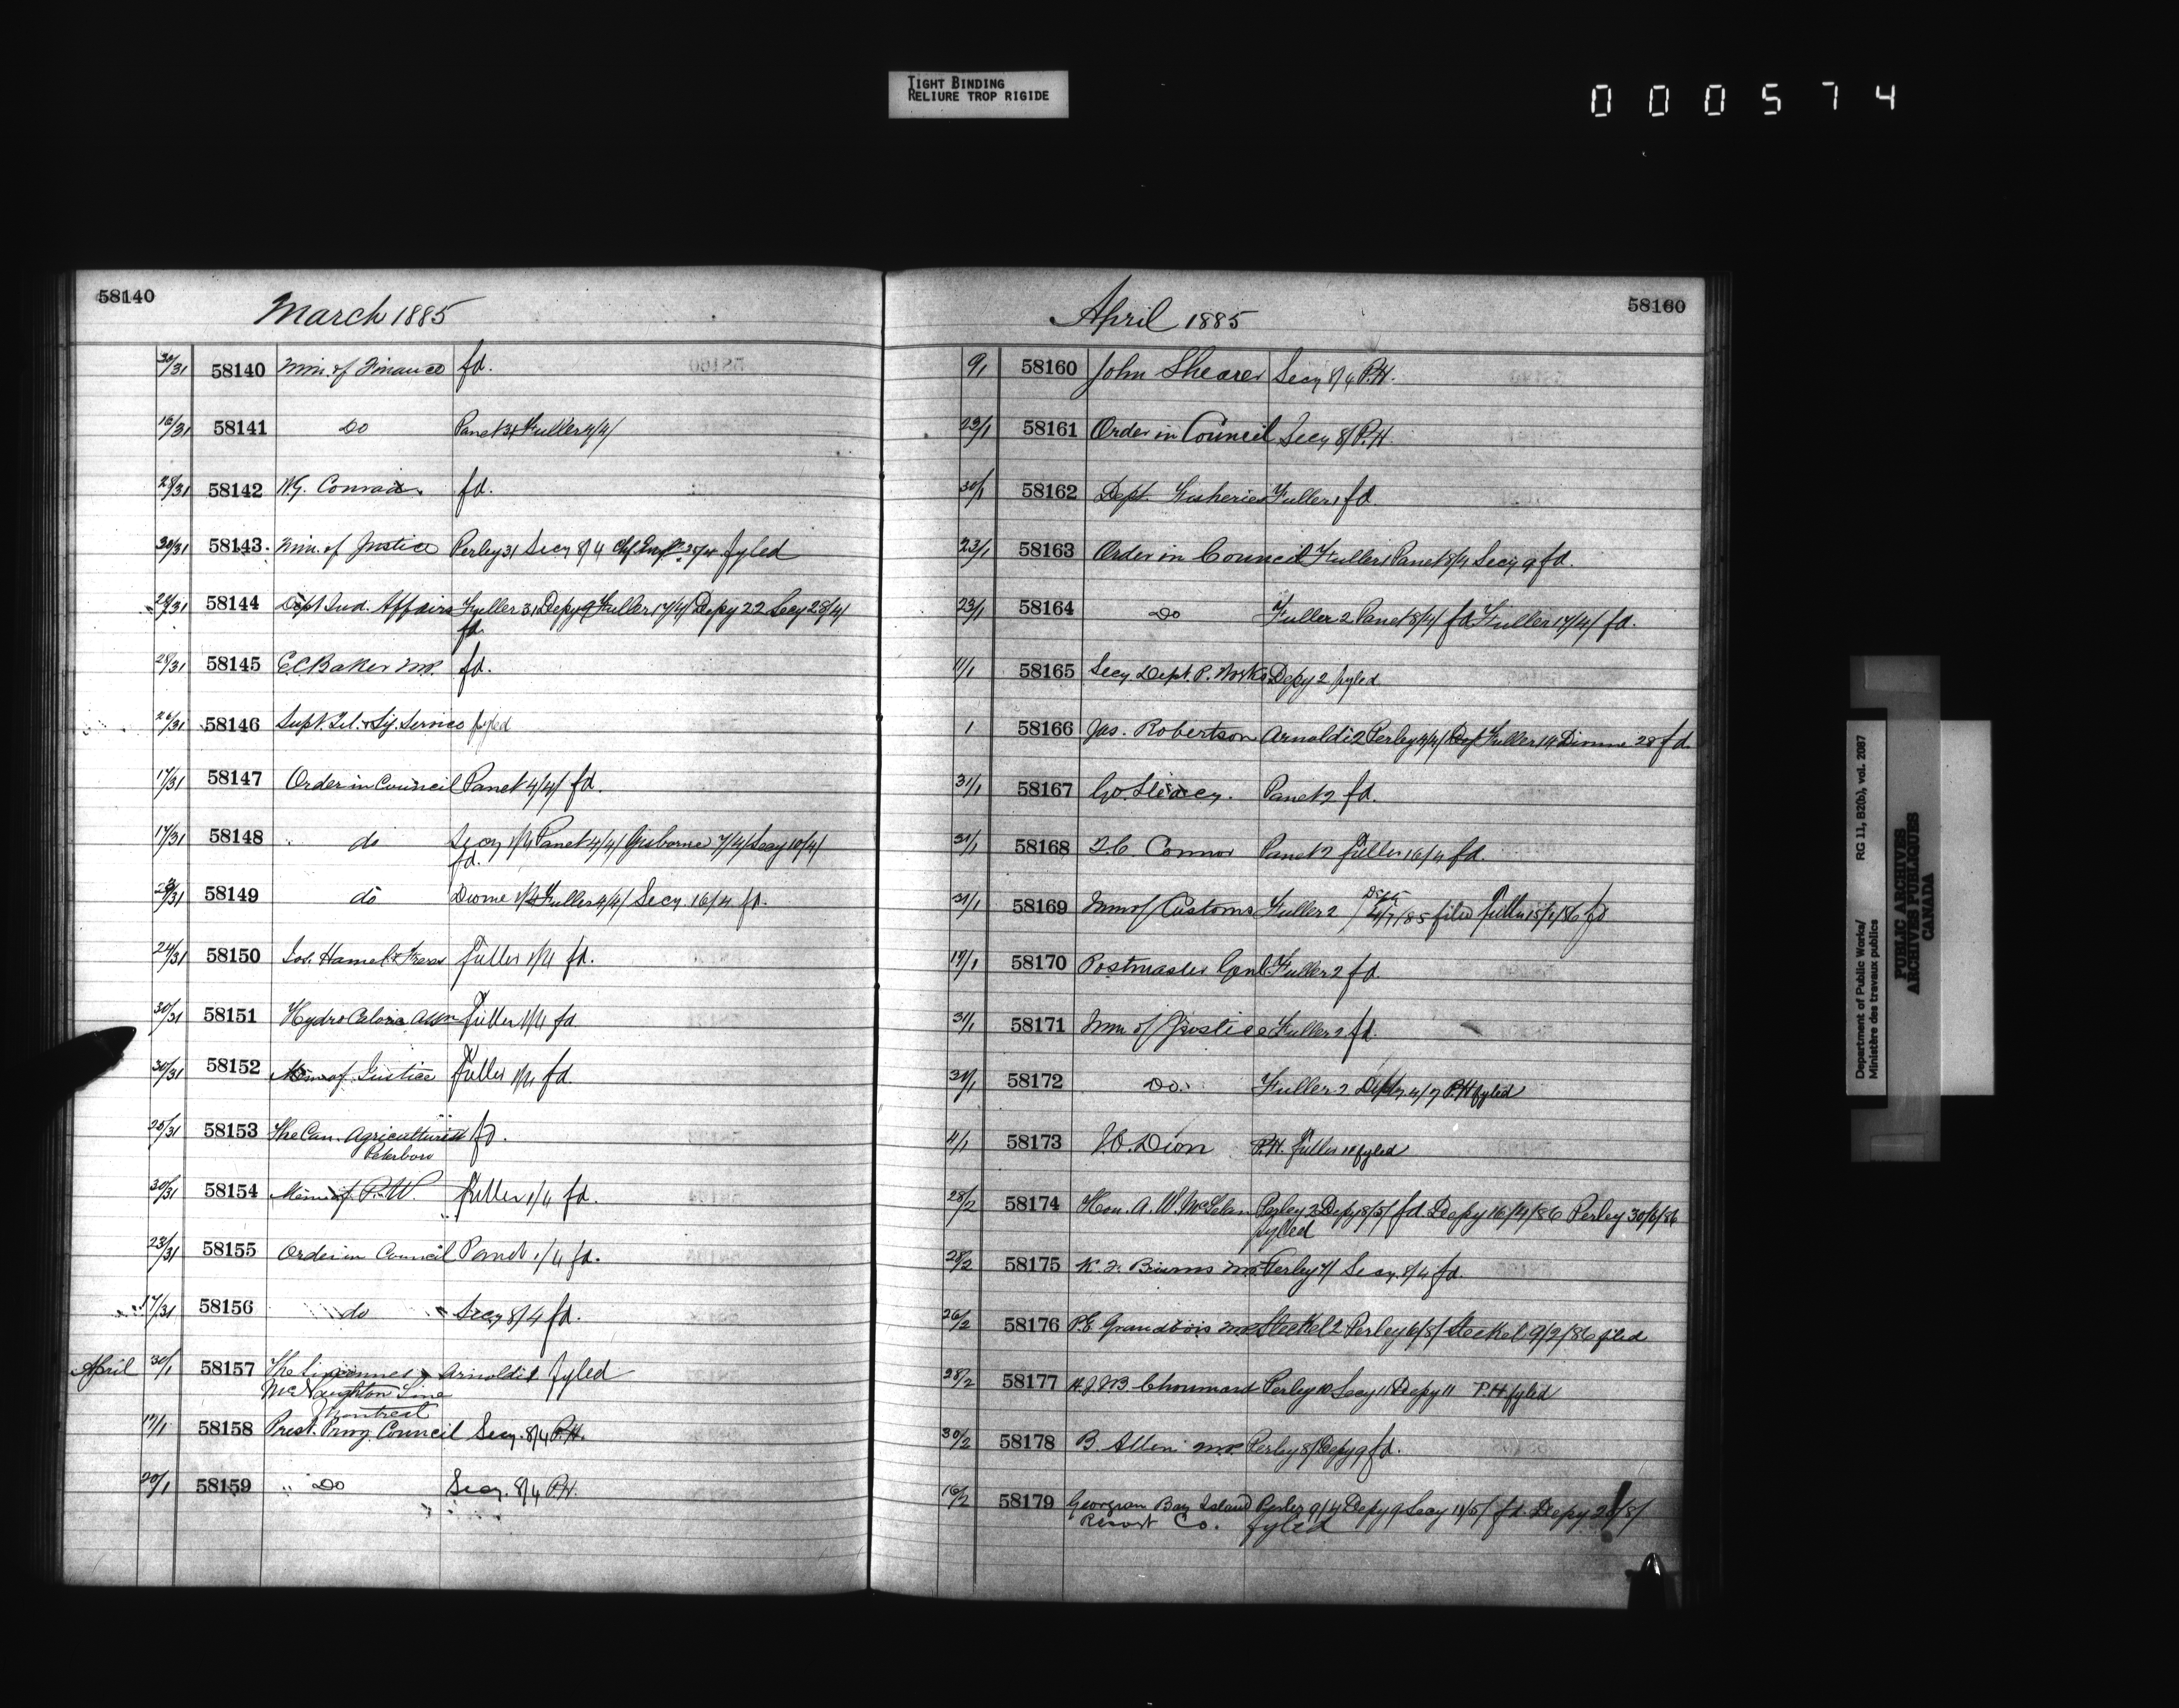 TIGHT BINDING
RELIURE TROP RIGIDE
000574
58140
March 1885
30/31 58140 Min. of Finance fd.
16/31 58141 Do Panet 31 Fuller 4/4/
28/31 58142 W.G. Conrad fd.
30/31 58143. Min. of Justice Perley 31 Secy 8/4 fyled
28/31 58144 Dept Ind. Affairs Fuller 31 Depy 9 Fuller 17/4/ Depy 22 Secy 28/4/
fd.
28/31 58145 E.C. Baker M.P. fd.
26/31 58146 Supt Tel. & Sig. Service fyled
17/31 58147 Order in Council Panet 4/4/ fd.
17/31 58148 do Secy 1/4 Panet 4/4/ Gisborne 7/4/ Secy 10/4/
fd.
58149 do Dionne 1/4 Fuller 4/4/ Secy 16/4 fd.
24/31 58150 Jos. Hamel & Freres Fuller 1/4 fd.
30/31 58151 Hydro Fuller 1/4 fd
30/31 58152 Min of Justice Fuller 1/4 fd.
25/31 58153 The Can. Agriculturist fd.
Peterboro
30/31 58154 P.W. Fuller 1/4 fd.
23/31 58155 Order in Council Panet 1/4 fd.
17/31 58156 do Secy 8/4 fd.
April 30/1 58157 The Arnoldi 1 fyled
McNaughton Line
Montreal
17/1 58158 Prest. Privy Council Secy. 8/4 P.H.
20/1 58159 " Do Secy. 8/4 P.H.
58160
April 1885
9/1 58160 John Shearer Secy 8/4 P.H.
23/1 58161 Order in Council Secy 8/ P.H.
30/1 58162 Dept. Fisheries Fuller 1 fd.
23/1 58163 Order in Council Fuller 1 Panet 8/4 Secy 9 fd.
23/1 58164 Do Fuller 2 Panet 8/4/ fd Fuller 17/4/ fd.
11/1 58165 Secy Dept. P. Works Depy 2 fyled.
1 58166 Jas. Robertson Arnoldi 2 Perley 4/4/ Fuller 14 Dionne 28 fd.
31/1 58167 Panet 2 fd.
31/1 58168 Connor Panet 2 Fuller 16/4 fd.
31/1 58169 Min of Customs Fuller 2 4/7/85 filed Fuller 15/1/86 fd
17/1 58170 Postmaster Genl Fuller 2 fd.
31/1 58171 Min of Justice Fuller 2 fd.
31/1 58172 Do. Fuller 2 Depy. 4/7 P.H fyled
4/1 58173 J.O. Dion P.H. Fuller 11 fyled
28/2 58174 Hon. A.W. McLelan Perley 2 Depy 8/5/ fd. Depy 16/4/86 Perley 30/6/86
fyled
28/2 58175 K.F. Burns M.P. Perley 7/ Secy. 8/4 fd.
26/2 58176 P.E. Grandbois M.P. Steckel 2 Perley 6/8/ Steckel 9/2/86 filed
28/2 58177 Chouinard Perley 10 Secy 11 Depy 11 P.H fyled
30/2 58178 B. Allen M.P. Perley 8/ Depy 9 fd.
16/2 58179 Georgian Bay Island Perley 9/4 Depy 9 Secy 11/5/ fd. Depy 28/8/
Resort Co. fyled
Department of Public Works/
Ministère des travaux publics
RG 11, B2(b), vol. 2087
PUBLIC ARCHIVES
ARCHIVES PUBLIQUES
CANADA